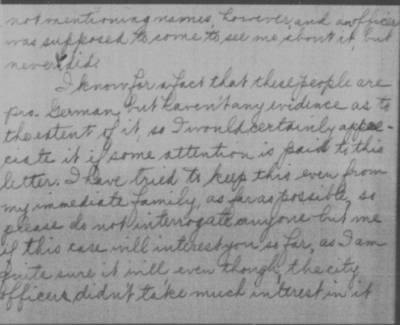 not mentioning names, however, and an officer
was supposed to come to see me about it, but
never did.
I know for a fact that these people are
pro. German, but haven't any evidence as to
the extent of it, so I would certainly appre-
ciate it if some attention is paid to this
letter. I have tried to keep this even from
my immediate family, as far as possible, so
please do not interrogate anyone but me
if this case will interest you so far, as I am
quite sure it will, even though, the city
officers didn't take much interest in it